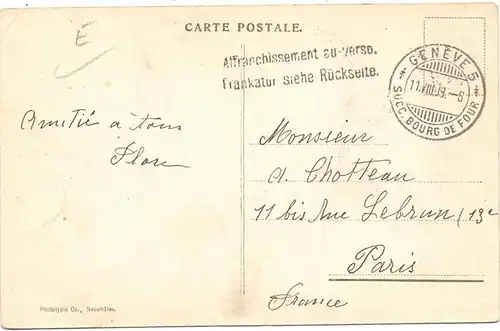 E
CARTE POSTALE.
Affranchissement au verso.
Frankatur siehe Rückseite.
* GENÈVE 5 *
11.VIII.09.-8
SUCC. BOURG DE FOUR
Amitié à tous
Flore
Monsieur
A. Chotteau
11 bis Rue Lebrun (13e
Paris
France
Phototypie Co., Neuchâtel.